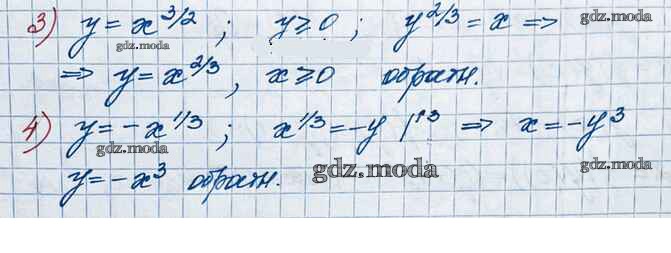 3) y = x^{3/2} ; y ⩾ 0 ; y^{2/3} = x =>
gdz.moda gdz.moda
=> y = x^{2/3} , x ⩾ 0 обратн.
gdz.moda
4) y = -x^{1/3} ; x^{1/3} = -y |↑3 => x = -y^3
gdz.moda gdz.moda
y = -x^3 обратн. gdz.moda